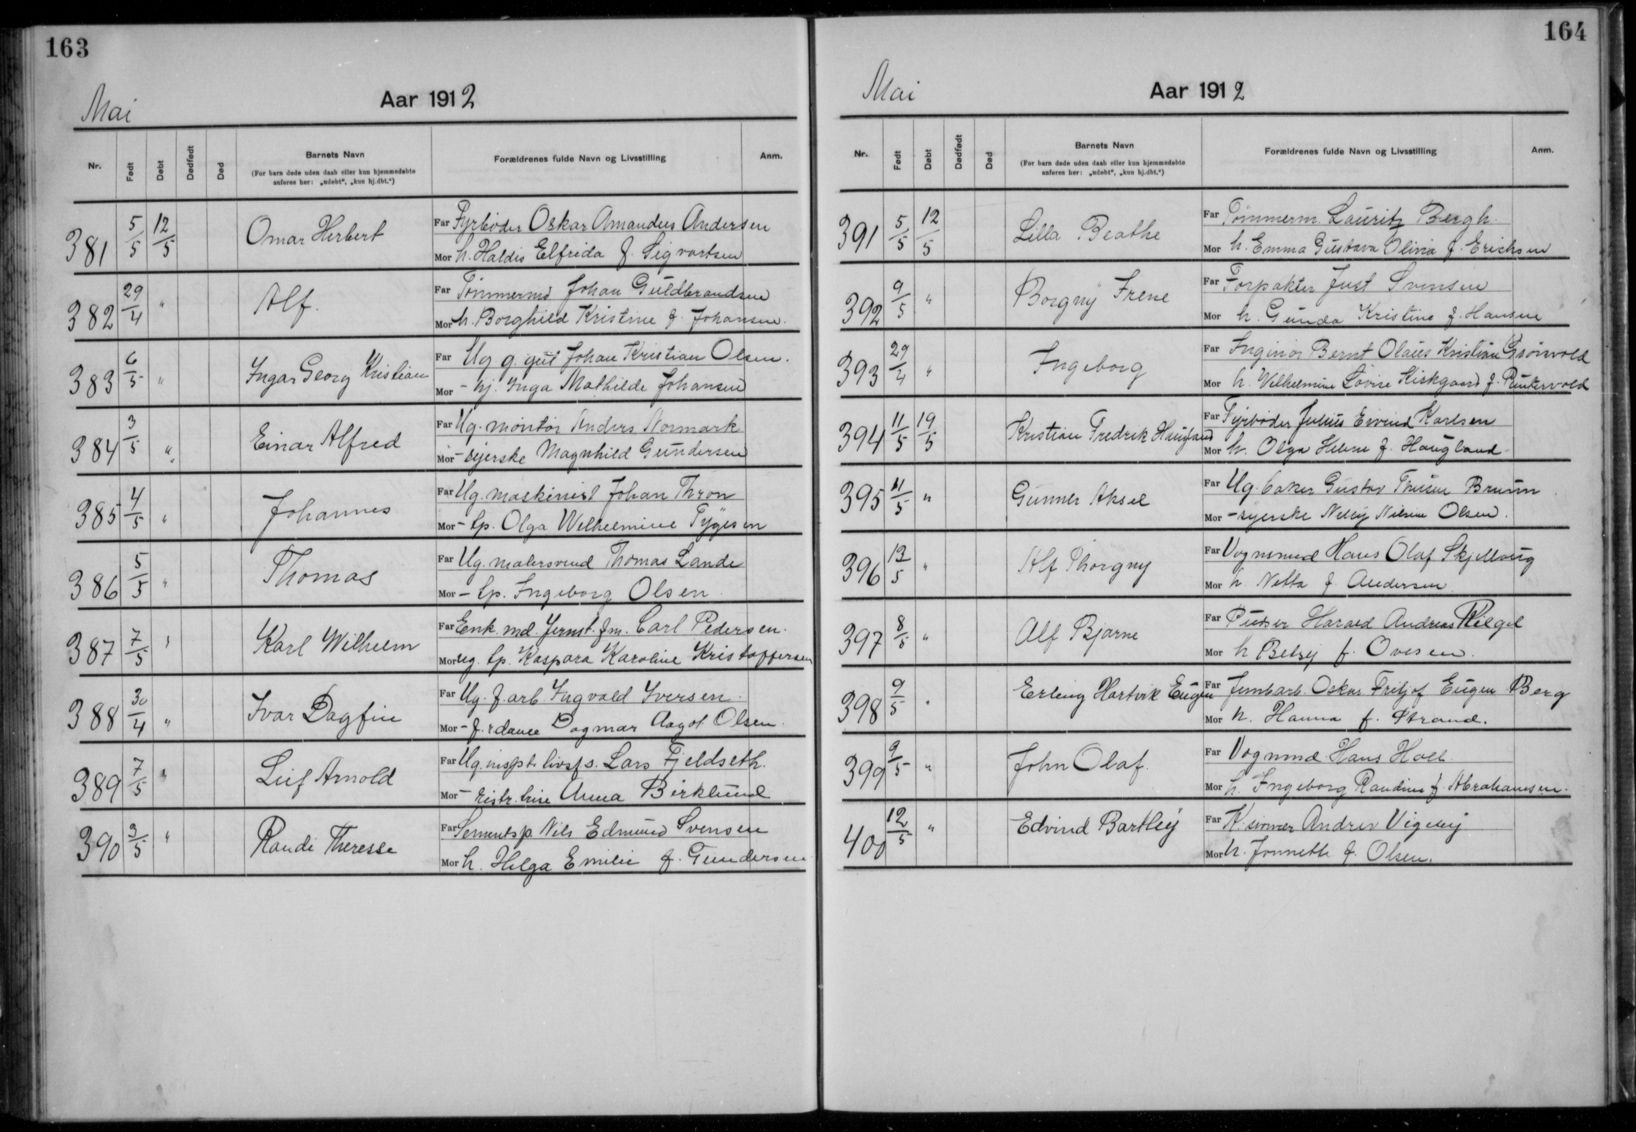 163
Mai
Aar 1912
Nr. Født Døbt Dødfødt Død Barnets Navn Forældrenes fulde Navn og Livsstilling Anm.
(For barn døde uden daab eller kun hjemmedøbte
anføres her: „udøbt", „kun hj.dbt.")
381 5/5 12/5 Omar Herbert Far Fyrbøder Oskar Amandus Andersen
Mor h. Haldis Elfrida f. Sigvartsen
382 29/4 " Alf. Far Tømmermd Johan Guldbrandsen
Mor h. Borghild Kristine f. Johansen.
383 6/5 " Ingar Georg Kristian Far Ug g. gut Johan Kristian Olsen.
Mor - hj. Inga Mathilde Johansen
384 3/5 " Einar Alfred Far Ug. montør Anders Normark
Mor - syerske Magnhild Gundersen
385 4/5 " Johannes Far Ug. maskinist Johan Thron
Mor - tp. Olga Wilhelmine Tygesen
386 5/5 " Thomas Far Ug. malersvend Thomas Lande
Mor - tp. Ingeborg Olsen
387 7/5 " Karl Wilhelm Far Enk. md. Jernst. fm. Carl Pedersen.
Mor ug. tp. Kaspara Karoline Kristoffersen
388 30/4 " Ivar Dagfin Far Ug. f. arb Ingvald Iversen.
Mor - Dagmar Aagot Olsen.
389 7/5 " Leif Arnold Far Ug. inspt. livsfs. Lars Fjeldseth.
Mor - Anna Birklund
390 3/5 " Randi Therese Far Sementsp. Nils Edmund Svensen
Mor h. Helga Emilie f. Gundersen
164
Mai
Aar 1912
Nr. Født Døbt Dødfødt Død Barnets Navn Forældrenes fulde Navn og Livsstilling Anm.
(For barn døde uden daab eller kun hjemmedøbte
anføres her: „udøbt", „kun hj.dbt.")
391 5/5 12/5 Lilla Beathe Far Tømmerm. Lauritz Bergh
Mor h. Emma Gustava Olivia f. Erichsen
392 9/5 " Borgny Irene Far Forpakter Just Svensen
Mor h. Gunda Kristine f. Hansen
393 29/4 " Ingeborg Far Inginiør Bernt Olaus Kristian Grønvold
Mor h. Vilhelmine Lovise Kirkgaard f.
394 11/5 19/5 Kristian Fredrik Haugland Far Fyrbøder Julius Eivind Karlsen
Mor h. Olga Helene f. Haugland
395 11/5 " Gunner Aksel Far Ug. baker Gustav Bruun
Mor - syerske Nelly Olsen.
396 12/5 " Alf Thorgny Far Vognmnd Hans Olaf Skjellaug
Mor h Netta f Andersen
397 8/5 " Alf Bjarne Far Pudser Harald Andreas
Mor h Betsy f. Ovesen.
398 9/5 " Erling Hartvik Eugen Far Jernbarb. Oskar Fritjof Eugen Berg
Mor h. Hanna f. Strand.
399 9/5 " John Olaf. Far Vognmnd Hans Holt
Mor h. Ingeborg Randine f. Abrahamsen.
400 12/5 " Edvind Bartley Far Andrew Vigeley
Mor h. Jonneth f. Olsen.